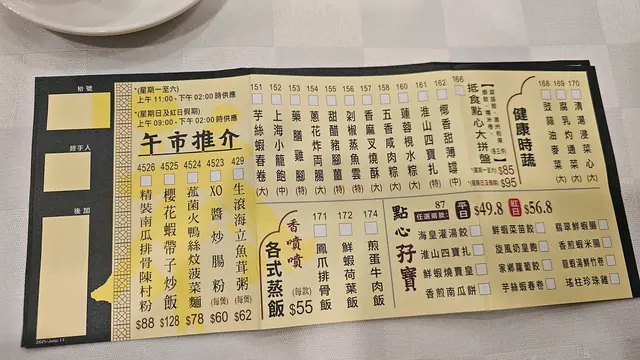 枱號
醒手人
後加
*(星期一至六)
上午 11:00 - 下午 02:00 時供應
*(星期日及紅日假期)
上午 09:00 - 下午 02:00 時供應
午市推介
4526 精裝南瓜排骨陳村粉 $88
4525 櫻花蝦帶子炒飯 $128
4524 菰菌火鴨絲炆菠菜麵 $78
4523 XO醬炒腸粉 (每客) $60
429 生滾海立魚茸粥 (每煲) $62
151 芋絲蝦春卷 (大)
152 上海小籠飽 (中)
153 藥膳雞腳 (特)
154 蔥花炸両腸 (大)
155 甜醋豬腳薑 (特)
156 剁椒蒸魚雲 (特)
157 香麻叉燒酥 (大)
158 五香咸肉水粽 (大)
160 蓮蓉梘水粽 (大)
161 淮山四寶扎 (特)
162 椰香甜薄罉 (中)
166
抵食點心大拼盤
*(星期一至六) $85
*(星期日及紅日假期) $95
健康時蔬
168 豉蒜油麥菜 (大)
169 腐乳灼通菜 (大)
170 清湯浸菜心 (大)
香噴噴
各式蒸飯
(每款)
$55
171 鳳爪排骨飯
172 鮮蝦荷葉飯
174 煎蛋牛肉飯
點心孖寶
87
任選兩款:
平日 $49.8 紅日 $56.8
海皇灌湯餃
淮山四寶扎
鮮蝦燒賣皇
香煎南瓜餅
鮮蝦菜苗餃
旋風奶皇飽
家鄉蘿蔔糕
芋絲蝦春卷
翡翠鮮蝦腸
香煎蝦米腸
龍蝦湯鮮竹卷
瑤柱珍珠雞